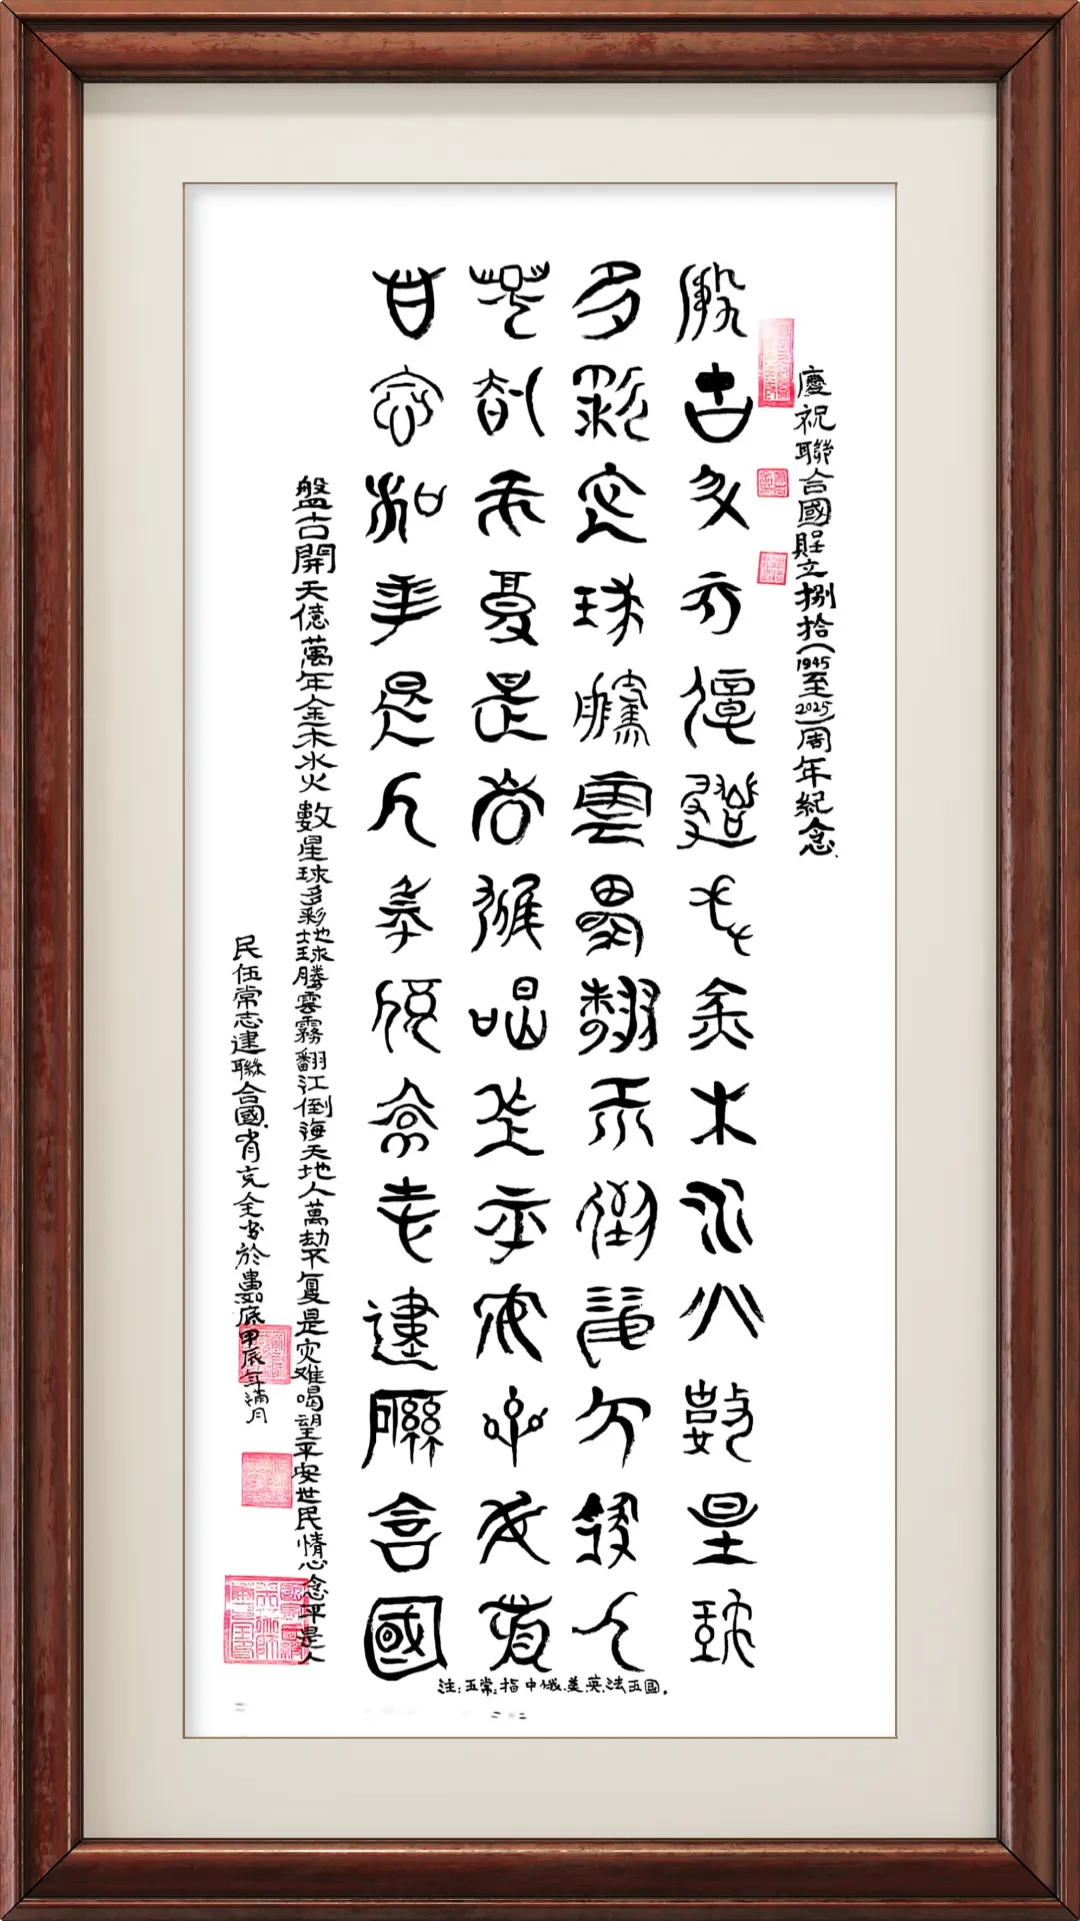 慶祝聯合國立捌拾(1945至2025)周年紀念.
盤古開天億萬年金木水火數星球
多彩地球騰雲霧翻江倒海天地人
萬劫不复是灾难喝望平安世民情
心念和平是人民伍常志建聯合國
盤古開天億萬年金木水火數星球多彩地球勝雲霧翻江倒海天地人萬劫不复是灾难喝望平安世民情心念平是人
民伍常志建聯合國.肖克全书於婁底甲辰年满月
注:五常:指中俄.美.英.法五國.